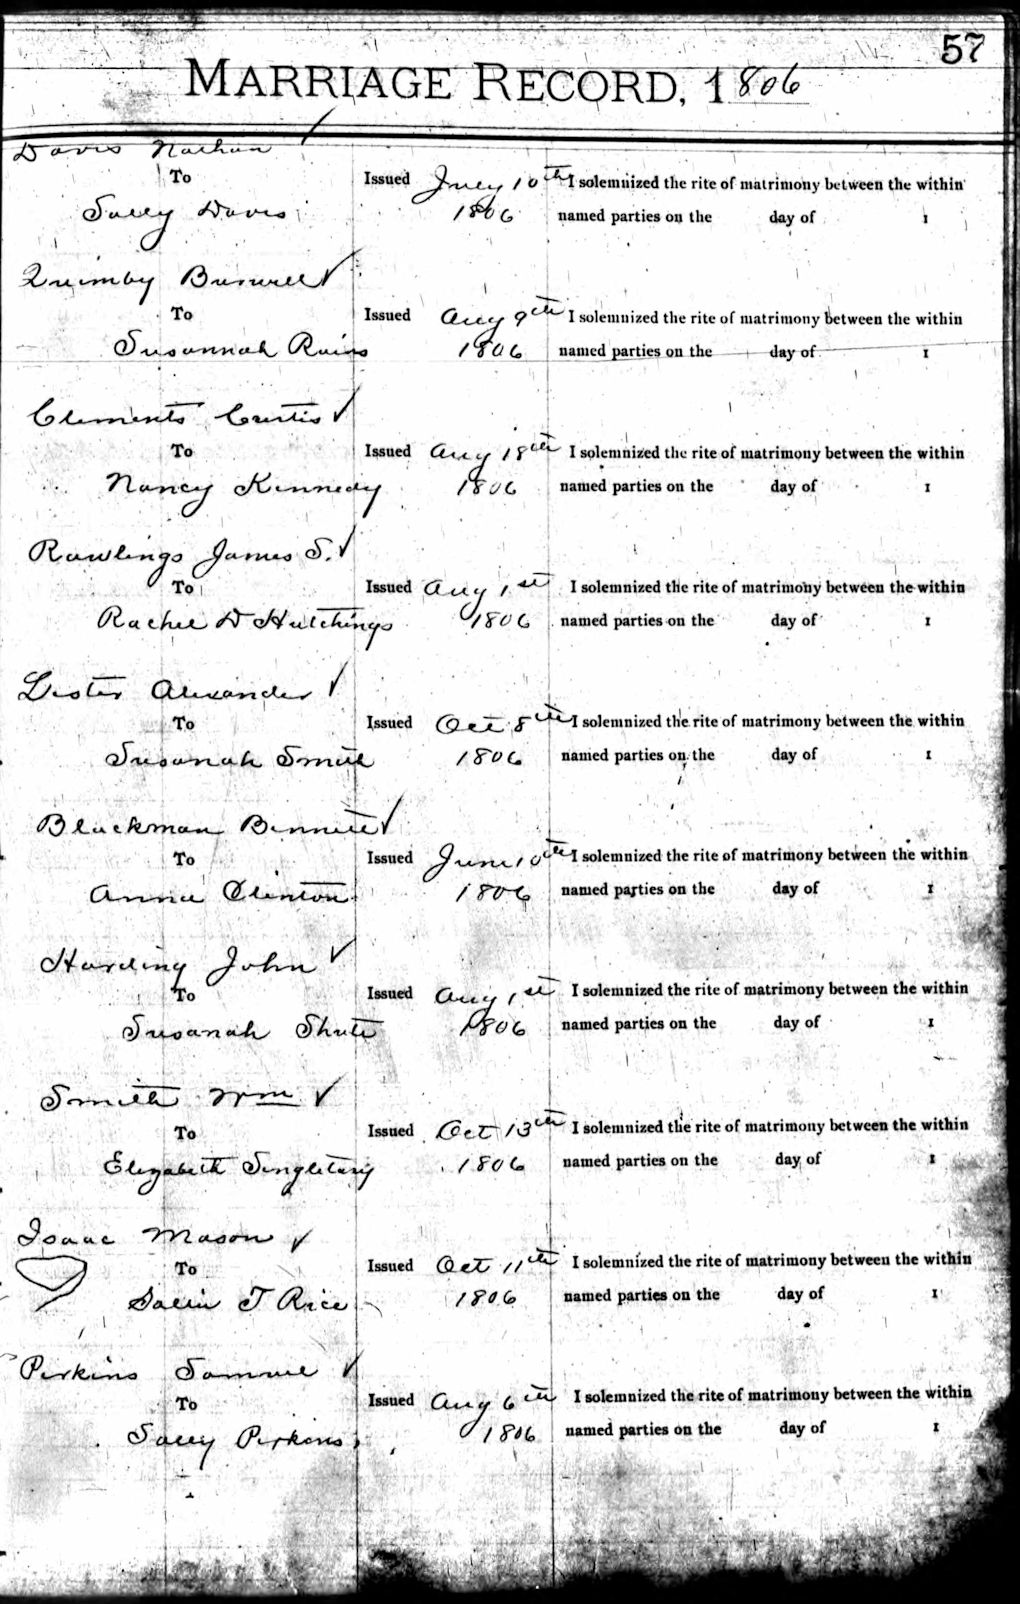 57
MARRIAGE RECORD, 1806
Davis Nathan
To
Issued July 10th I solemnized the rite of matrimony between the within
Sally Davis 1806 named parties on the day of 1
Quimby Burwell
To
Issued Aug 9th I solemnized the rite of matrimony between the within
Susannah Rains 1806 named parties on the day of 1
Clements Curtis
To
Issued Aug 18th I solemnized the rite of matrimony between the within
Nancy Kennedy 1806 named parties on the day of 1
Rawlings James S.
To
Issued Aug 1st I solemnized the rite of matrimony between the within
Rachel D Hutchings 1806 named parties on the day of 1
Lester Alexander
To
Issued Oct 8th I solemnized the rite of matrimony between the within
Susanah Smith 1806 named parties on the day of 1
Blackman Bennett
To
Issued June 10th I solemnized the rite of matrimony between the within
Anna Clinton 1806 named parties on the day of 1
Harding John
To
Issued Aug 1st I solemnized the rite of matrimony between the within
Susanah Shute 1806 named parties on the day of 1
Smith Wm
To
Issued Oct 13th I solemnized the rite of matrimony between the within
Elizabeth Singletary 1806 named parties on the day of 1
Isaac Mason
To
Issued Oct 11th I solemnized the rite of matrimony between the within
T Rice 1806 named parties on the day of 1
Perkins Samuel
To
Issued Aug 6th I solemnized the rite of matrimony between the within
Sally Perkins 1806 named parties on the day of 1